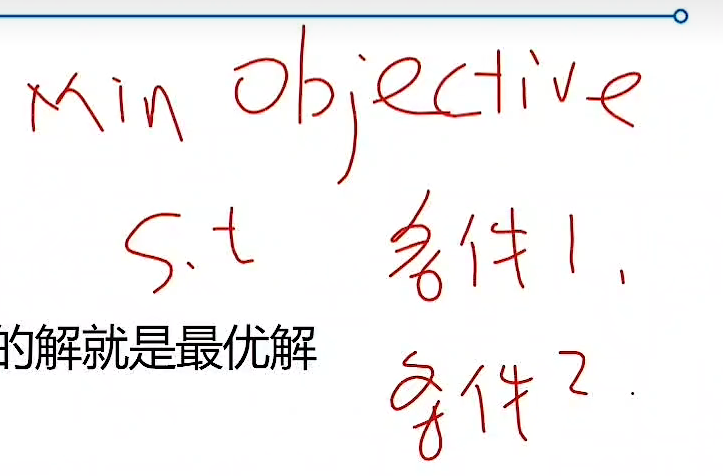 Min Objective
S.t 条件1.
的解就是最优解
条件2.